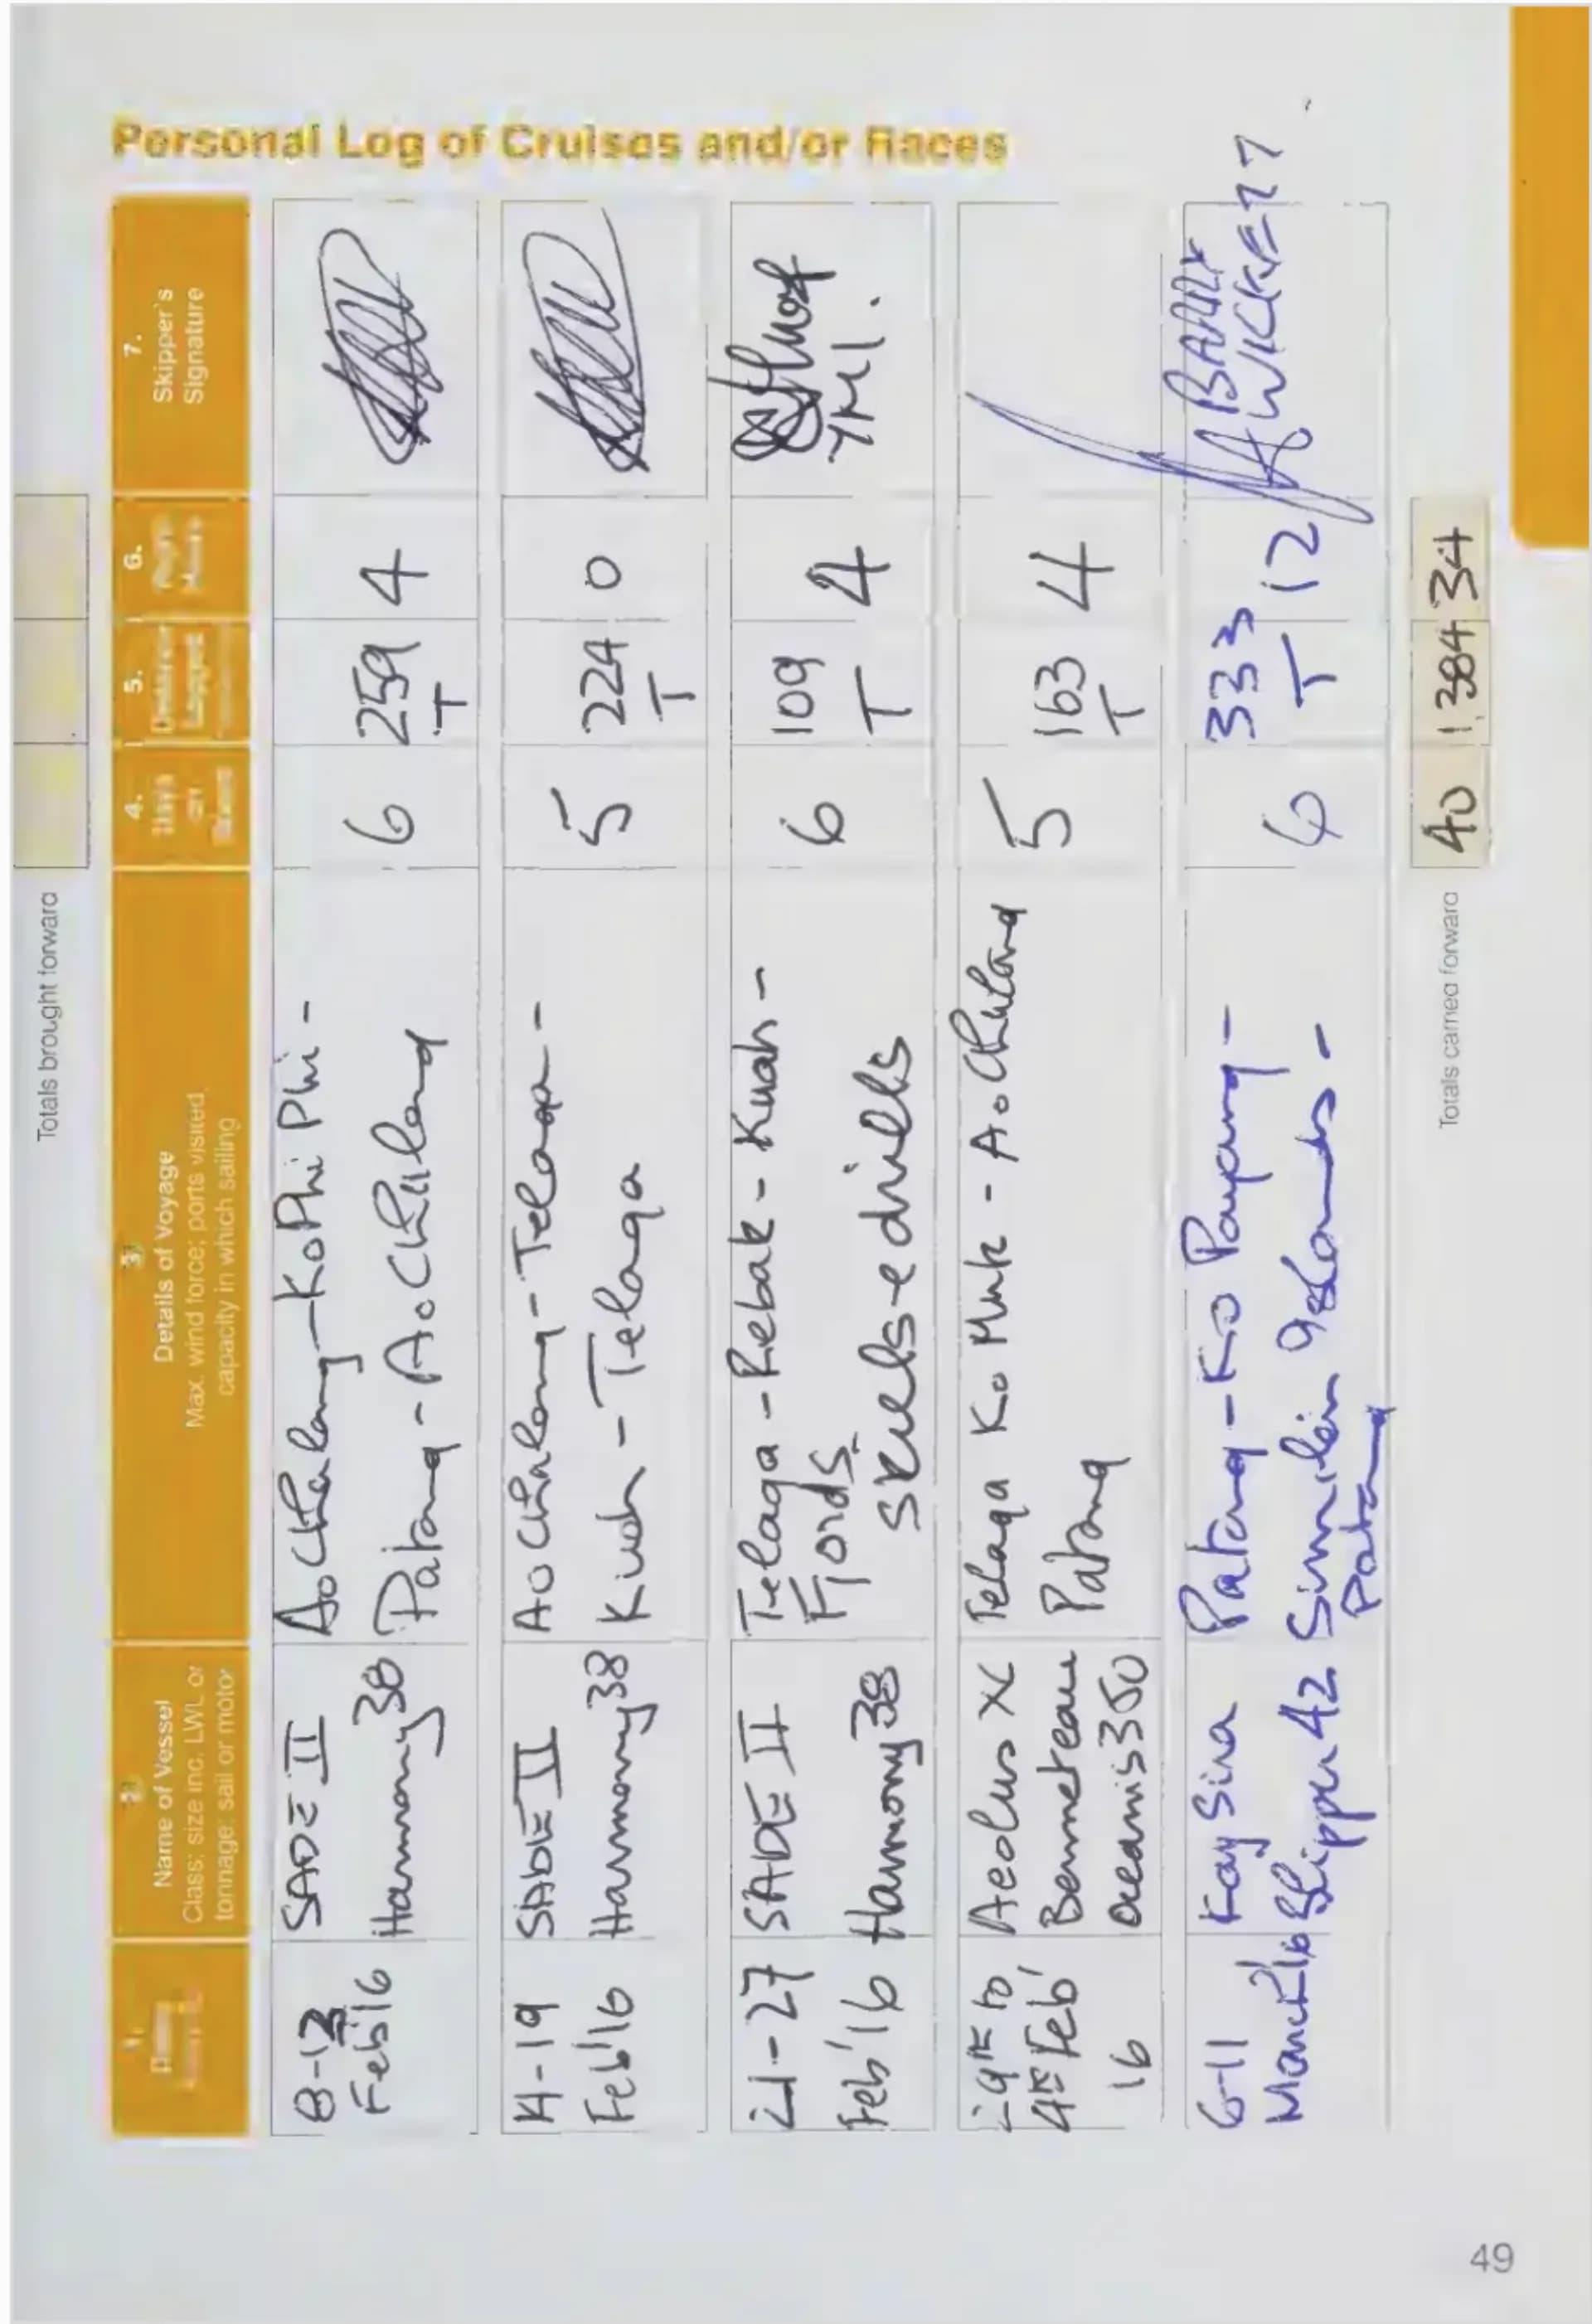 Totals brought forward
Personal Log of Cruises and/or Races
2.
Name of Vessel
Class: size inc. LWL or
tonnage: sail or motor
3.
Details of Voyage
Max. wind force; ports visited
capacity in which sailing
4.
Days
on
Board
5.
Distance
Logged
6.
Night
Hours
7.
Skipper's
Signature
8-13
Feb'16
SADE II
Harmony 38
Ao Chalong - Ko Phi Phi -
Patong - Ao Chalong
6
259
T
4
14-19
Feb'16
SADE II
Harmony 38
Ao Chalong - Telaga -
Kuah - Telaga
5
224
T
0
21-27
Feb'16
SADE II
Harmony 38
Telaga - Rebak - Kuah -
Fjords.
skills + drills
6
109
T
4
YMI.
4th Feb'
16
Aeolus XC
Benneteau
Oceanis 350
Telaga Ko Muk - Ao Chalong
Patong
5
163
T
4
6-11
March'16
Kay Sira
Slipper 42
Patong - Ko Payang -
Similan Islands -
Patong
6
333
T
12
BARRY
WICKETT
Totals carried forward
40
1384
34
49